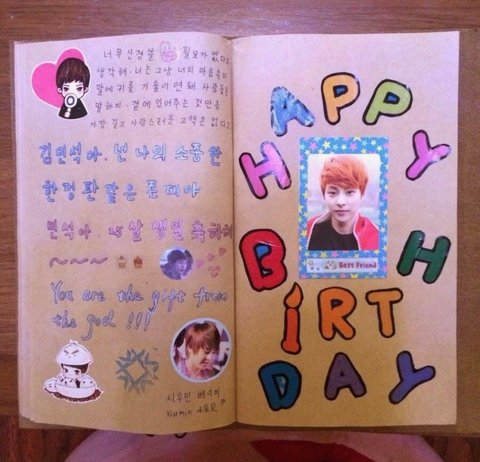 너무 신경쓸 필요가 없다고
생각해. 너는 그냥 너의 마음속의
말에 귀를 기울이면 돼. 사람들은
말하지. 곁에 있어주는 것만큼
가장 길고 사랑스러운 고백은 없다고.
김민석아. 넌 나의 소중한
한정판 같은 존재야
민석아. 25살 생일 축하해
~~~
You are the gift from
the god!!!
시우민 베이비
Xiumin
HAPPY
BIRTH
DAY
Best Friend